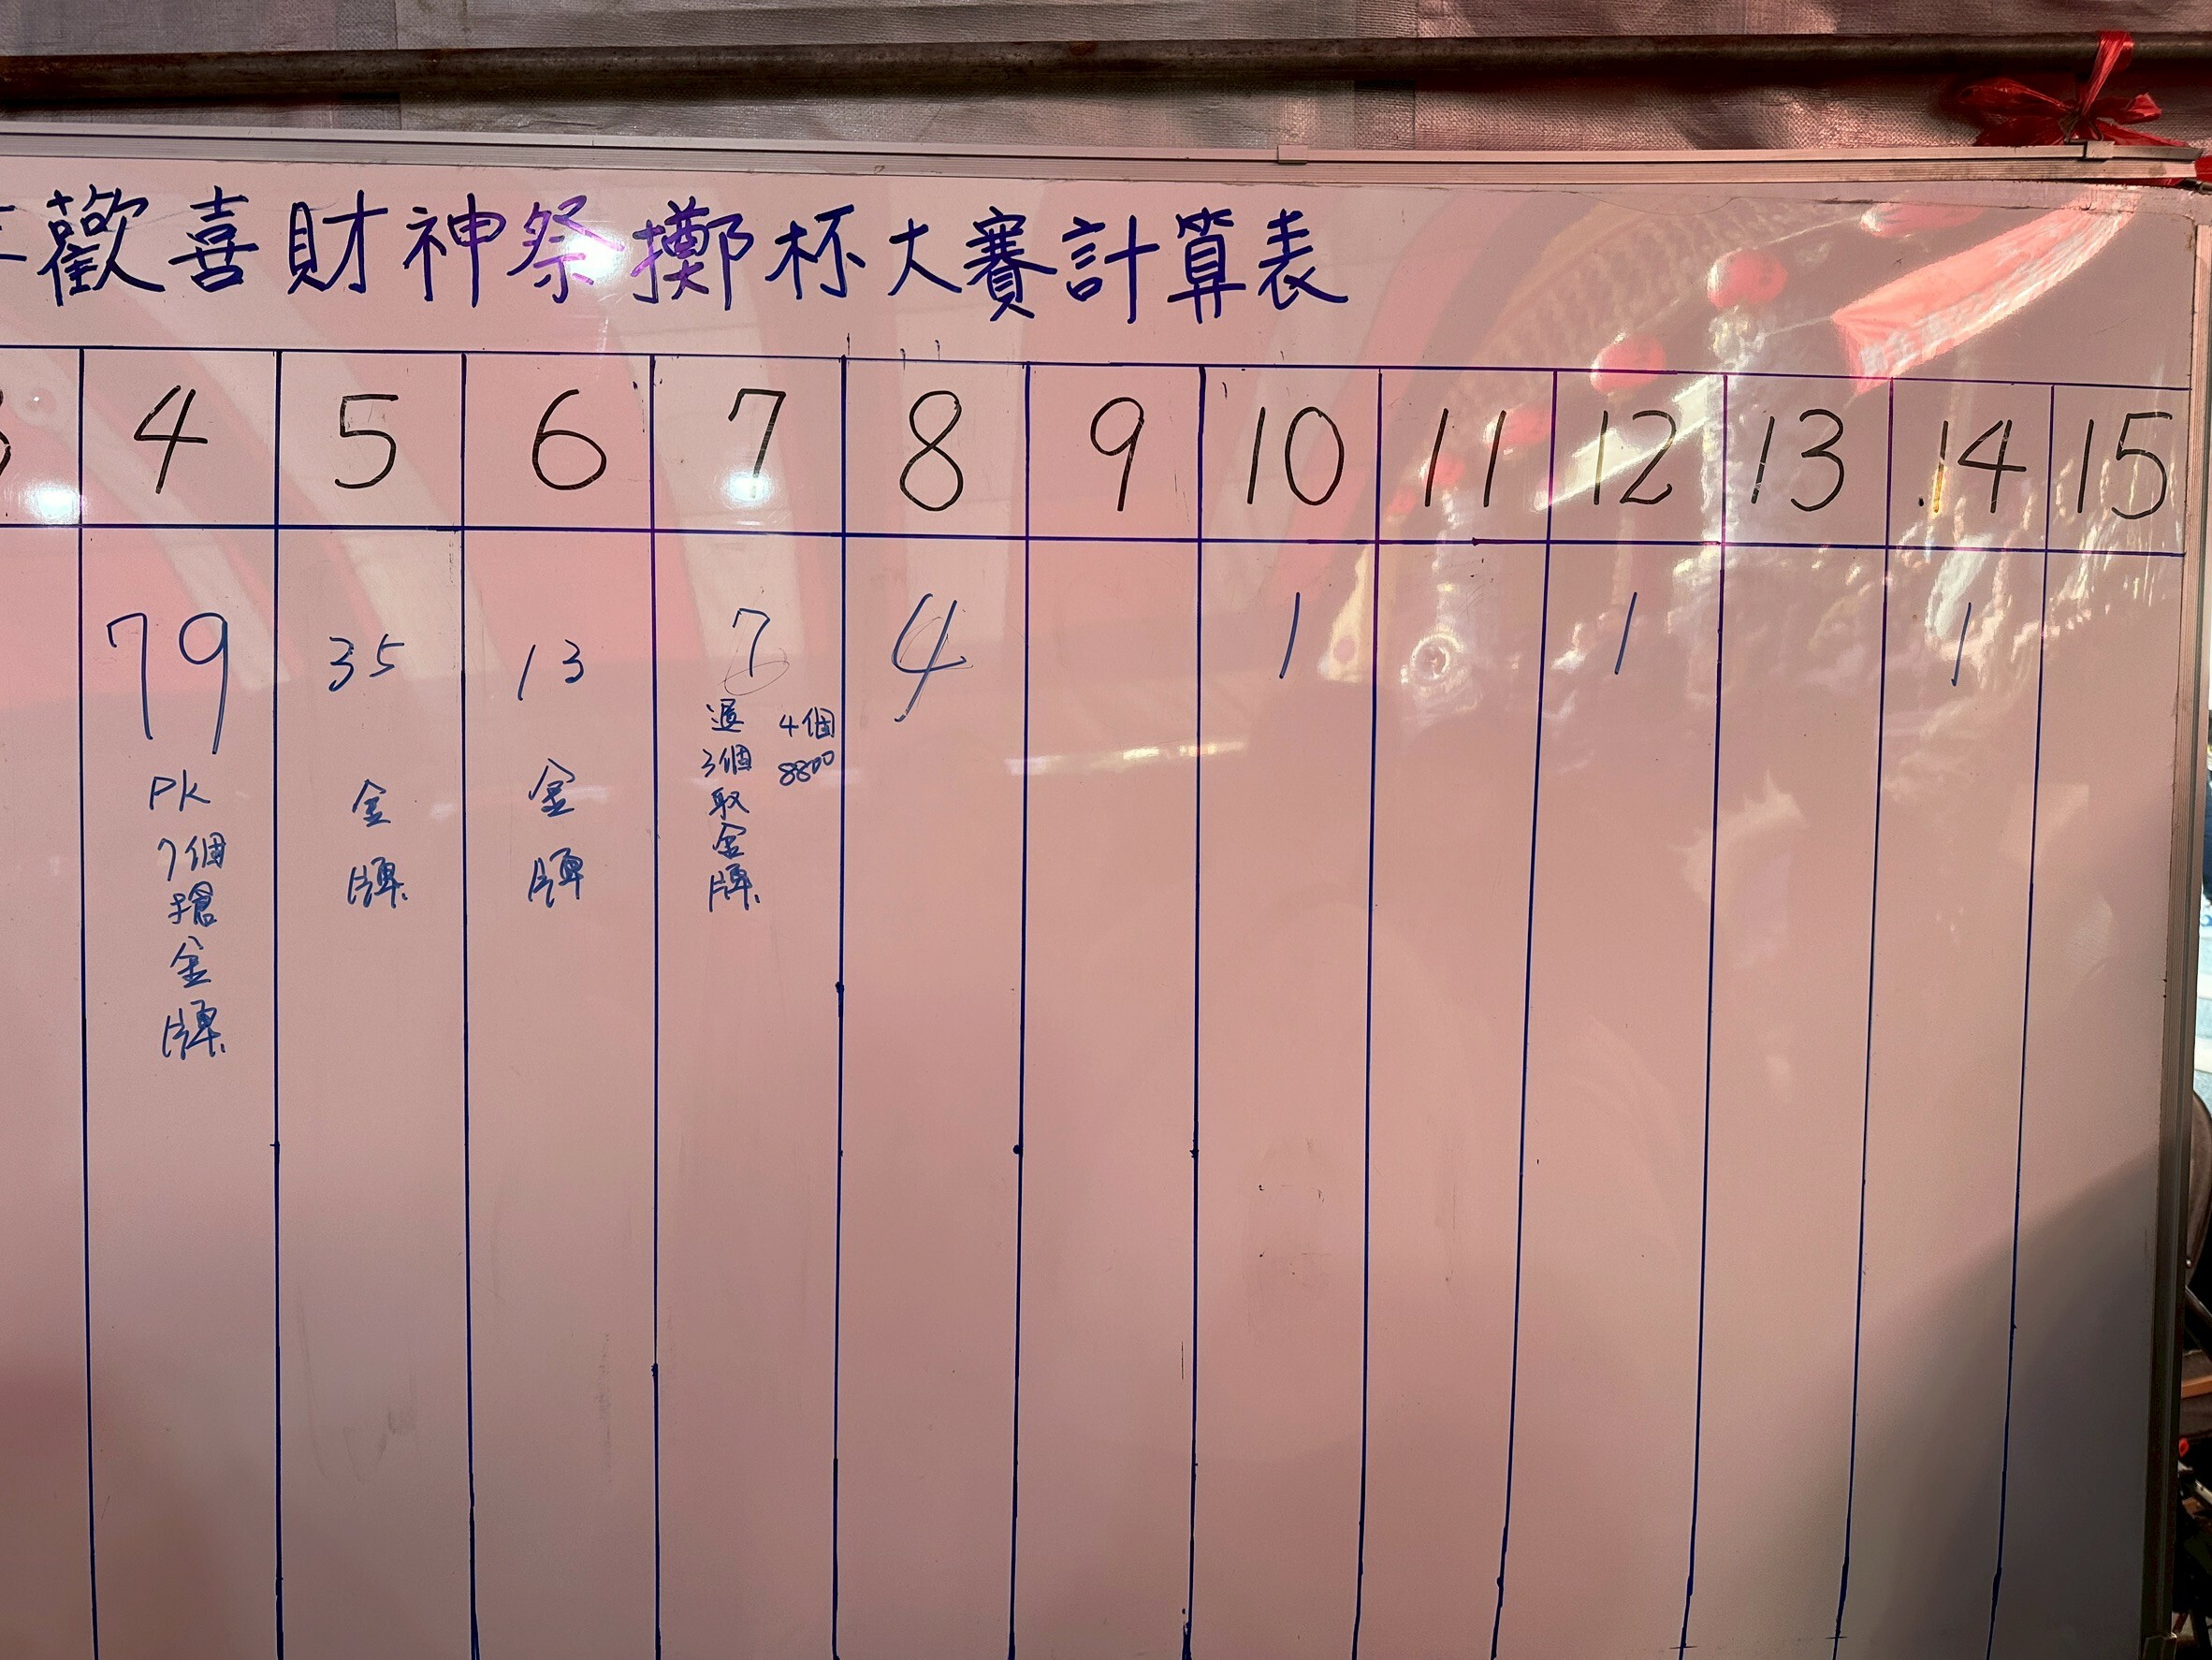 歡喜財神祭擲杯大賽計算表
4 5 6 7 8 9 10 11 12 13 14 15
79 35 13 7 4 1 1 1
PK
7個
搶
金
牌
金
牌
金
牌
3個
取
金
牌
4個
8800